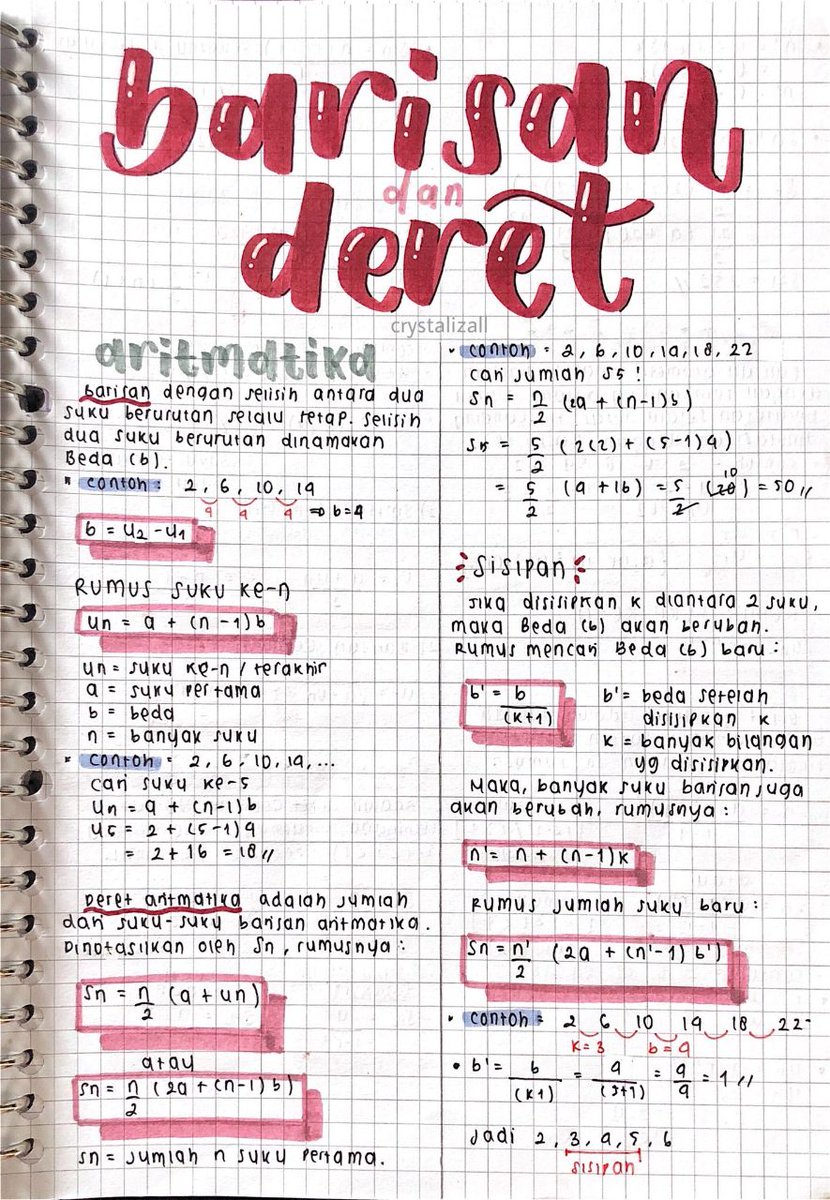 barisan
dan
deret
crystalizall
aritmatika
barisan dengan selisih antara dua
suku berurutan selalu tetap. selisih
dua suku berurutan dinamakan
Beda (b).
contoh: 2, 6, 10, 14
4 4 4 ⇒ b=4
b = U2 - U1
RUMUS SUKU KE-n
Un = a + (n-1)b
Un = suku ke-n / terakhir
a = suku pertama
b = beda
n = banyak suku
contoh = 2, 6, 10, 14, ...
cari suku ke-5
Un = a + (n-1)b
U5 = 2 + (5-1)4
= 2 + 16 = 18 //
Deret aritmatika adalah jumlah
dari suku-suku barisan aritmatika.
Dinotasikan oleh Sn, rumusnya:
Sn = n/2 (a + Un)
atau
Sn = n/2 (2a + (n-1) b)
Sn = jumlah n suku pertama.
contoh = 2, 6, 10, 14, 18, 22
cari jumlah S5 !
Sn = n/2 (2a + (n-1)b)
S5 = 5/2 (2(2) + (5-1)4)
= 5/2 (4 + 16) = 5/2 (20) = 50 //
10
Sisipan
Jika disisipkan k diantara 2 suku,
maka Beda (b) akan berubah.
Rumus mencari Beda (b) baru:
b' = b/(k+1)
b' = beda setelah
disisipkan k
k = banyak bilangan
yg disisipkan.
Maka, banyak suku barisan juga
akan berubah, rumusnya:
n' = n + (n-1)k
Rumus jumlah suku baru:
Sn = n'/2 (2a + (n'-1) b')
contoh = 2 6 10 14 18 22
k=3 b=4
b' = b/(k+1) = 4/(3+1) = 4/4 = 1 //
Jadi 2, 3, 4, 5, 6
sisipan